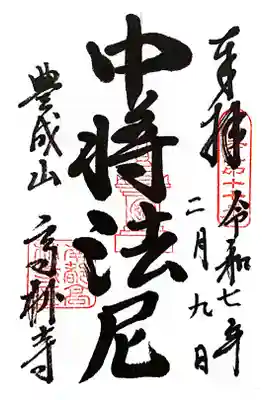 奉拝
令和七年
二月九日
中将法尼
豊成山
高林寺